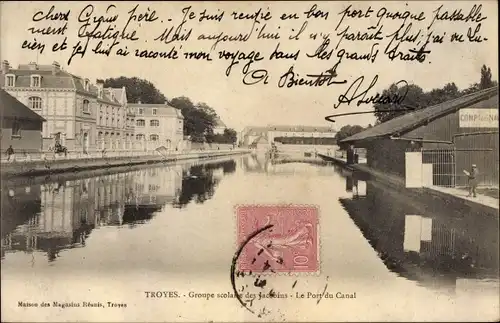 Cher Cugnu Père, Je suis rendue en bon port quoique passable
ment fatigué. Mais aujourd'hui il n'y paraît plus, j'ai vu Lu-
cien et je lui ai raconté mon voyage dans les grands traits.
A Bientôt
COMPAGNI
10
TROYES. - Groupe scolaire des Jacobins - Le Port du Canal
Maison des Magasins Réunis, Troyes